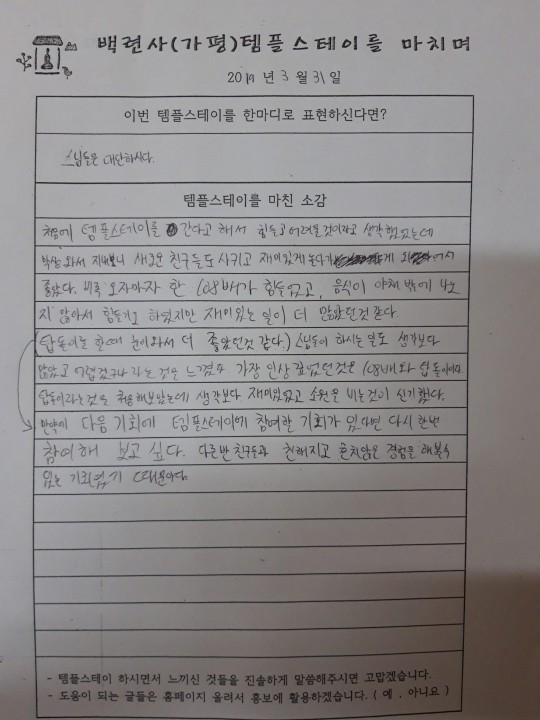 백련사(가평)템플스테이를 마치며
2019 년 3 월 31 일
이번 템플스테이를 한마디로 표현하신다면?
스님들은 대단하시다.
템플스테이를 마친 소감
처음에 템플스테이를 간다고 해서 힘들고 어려울것이라고 생각했었는데
막상 와서 지내보니 새로운 친구들도 사귀고 재미있게 놀다가
좋았다. 비록 오자마자 한 108배가 힘들었고, 음식이 야채 밖에 나오
지 않아서 힘들기도 하였지만 재미있는 일이 더 많았던것 같다.
(탑돌이를 할때 눈이와서 더 좋았던것 같다.) 스님들이 하시는 일도 생각보다
많았고 어렵겠구나 라는 것을 느꼈고 가장 인상 깊었던것은 108배와 탑돌이이다.
탑돌이라는것을 처음해보았는데 생각보다 재미있었고 소원을 비는것이 신기했다.
만약에 다음 기회에 템플스테이에 참여할 기회가 있다면 다시 한번
참여해 보고 싶다. 다른반 친구들과 친해지고 흔치않은 경험을 해볼수
있는 기회였기 때문이다.
- 템플스테이 하시면서 느끼신 것들을 진솔하게 말씀해주시면 고맙겠습니다.
- 도움이 되는 글들은 홈페이지 올려서 홍보에 활용하겠습니다. ( 예 . 아니요 )